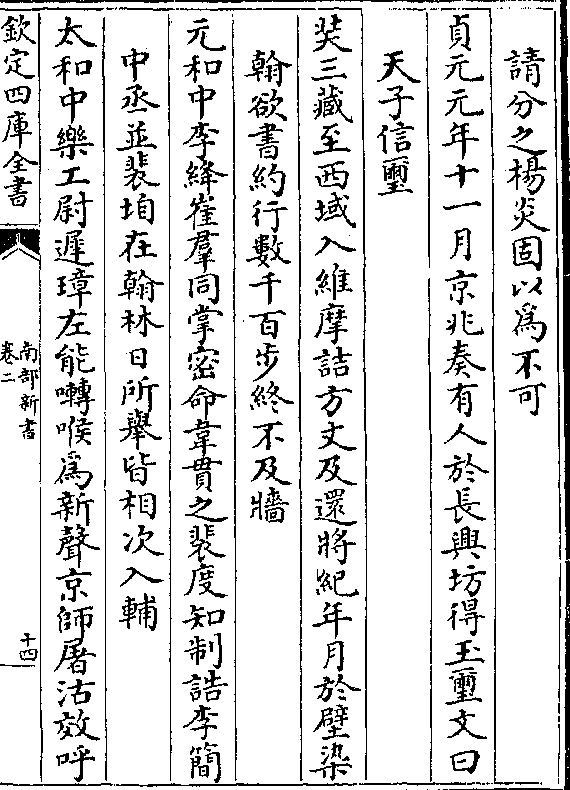 請分之楊炎固以爲不可
貞元元年十一月京兆奏有人於長興坊得玉璽文曰
天子信璽
奘三藏至西域入維摩詰方丈及還將紀年月於壁染
翰欲書約行數千百步終不及牆
元和中李絳崔羣同掌密命韋貫之裴度知制誥李簡
中丞並裴垍在翰林日所舉皆相次入輔
太和中樂工尉遲璋左能囀喉爲新聲京師屠沽效呼
欽定四庫全書
南部新書
卷二
十四